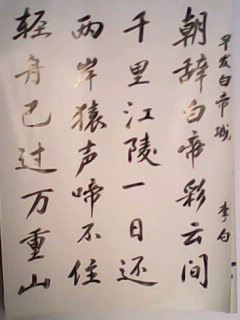 早发白帝城 李白
朝辞白帝彩云间
千里江陵一日还
两岸猿声啼不住
轻舟已过万重山